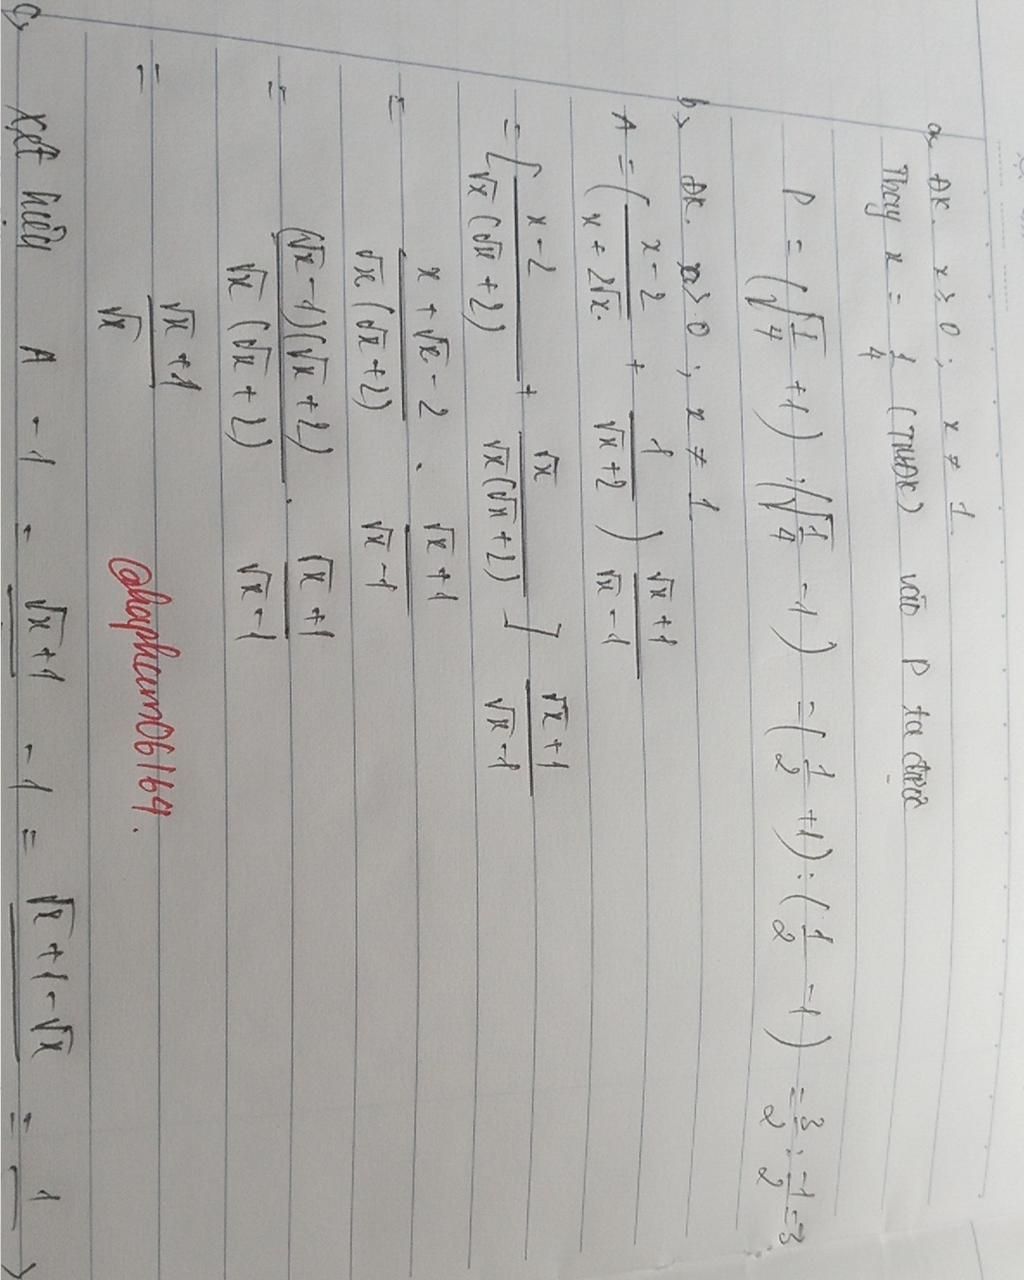 a, ĐK. x ≥ 0 ; x ≠ 1
Thay x = 1/4 (TMĐK) vào P ta được
P = (√1/4 + 1) : (√1/4 - 1) = (1/2 + 1) : (1/2 - 1) = 3/2 : -1/2 = 3
b, ĐK. x > 0 ; x ≠ 1
A = ( x-2 / x+2√x . + 1 / √x+2 ) √x+1 / √x-1
= [ x-2 / √x(√x+2) + √x / √x(√x+2) ] √x+1 / √x-1
= x+√x-2 / √x(√x+2) . √x+1 / √x-1
= (√x-1)(√x+2) / √x(√x+2) . √x+1 / √x-1
= √x+1 / √x
@hapham06164.
c, Xét hiệu A - 1 = √x+1 - 1 = √x+1-√x = 1 >